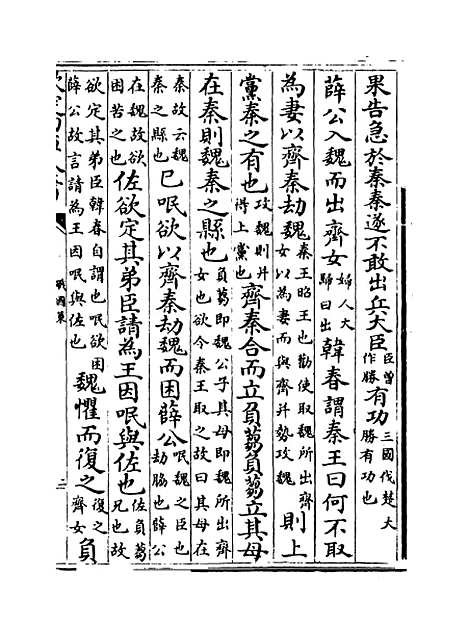 果告急於秦秦遂不敢出兵大臣臣曾作勝有功三國伐楚大勝有功也
薛公入魏而出齊女婦人大歸曰出韓春謂秦王曰何不取
為妻以齊秦劫魏秦王昭王也勸使取魏所出齊女以為妻而與齊并勢攻魏則上
黨秦之有也攻魏則并得上黨也齊秦合而立負蒭負蒭立其母
在秦則魏秦之縣也負蒭即魏公子其母即魏所出齊女也欲今秦王取之故曰其母在
秦故云魏秦之縣也已呡欲以齊秦劫魏而困薛公呡魏之臣也劫脇也薛公
在魏故欲困苦之也佐欲定其弟臣請為王因呡與佐也佐負蒭兄也故
欲定其弟臣韓春自謂也呡欲困薛公故言請為王因呡與佐也魏懼而復之復之齊女負
戰國策
二